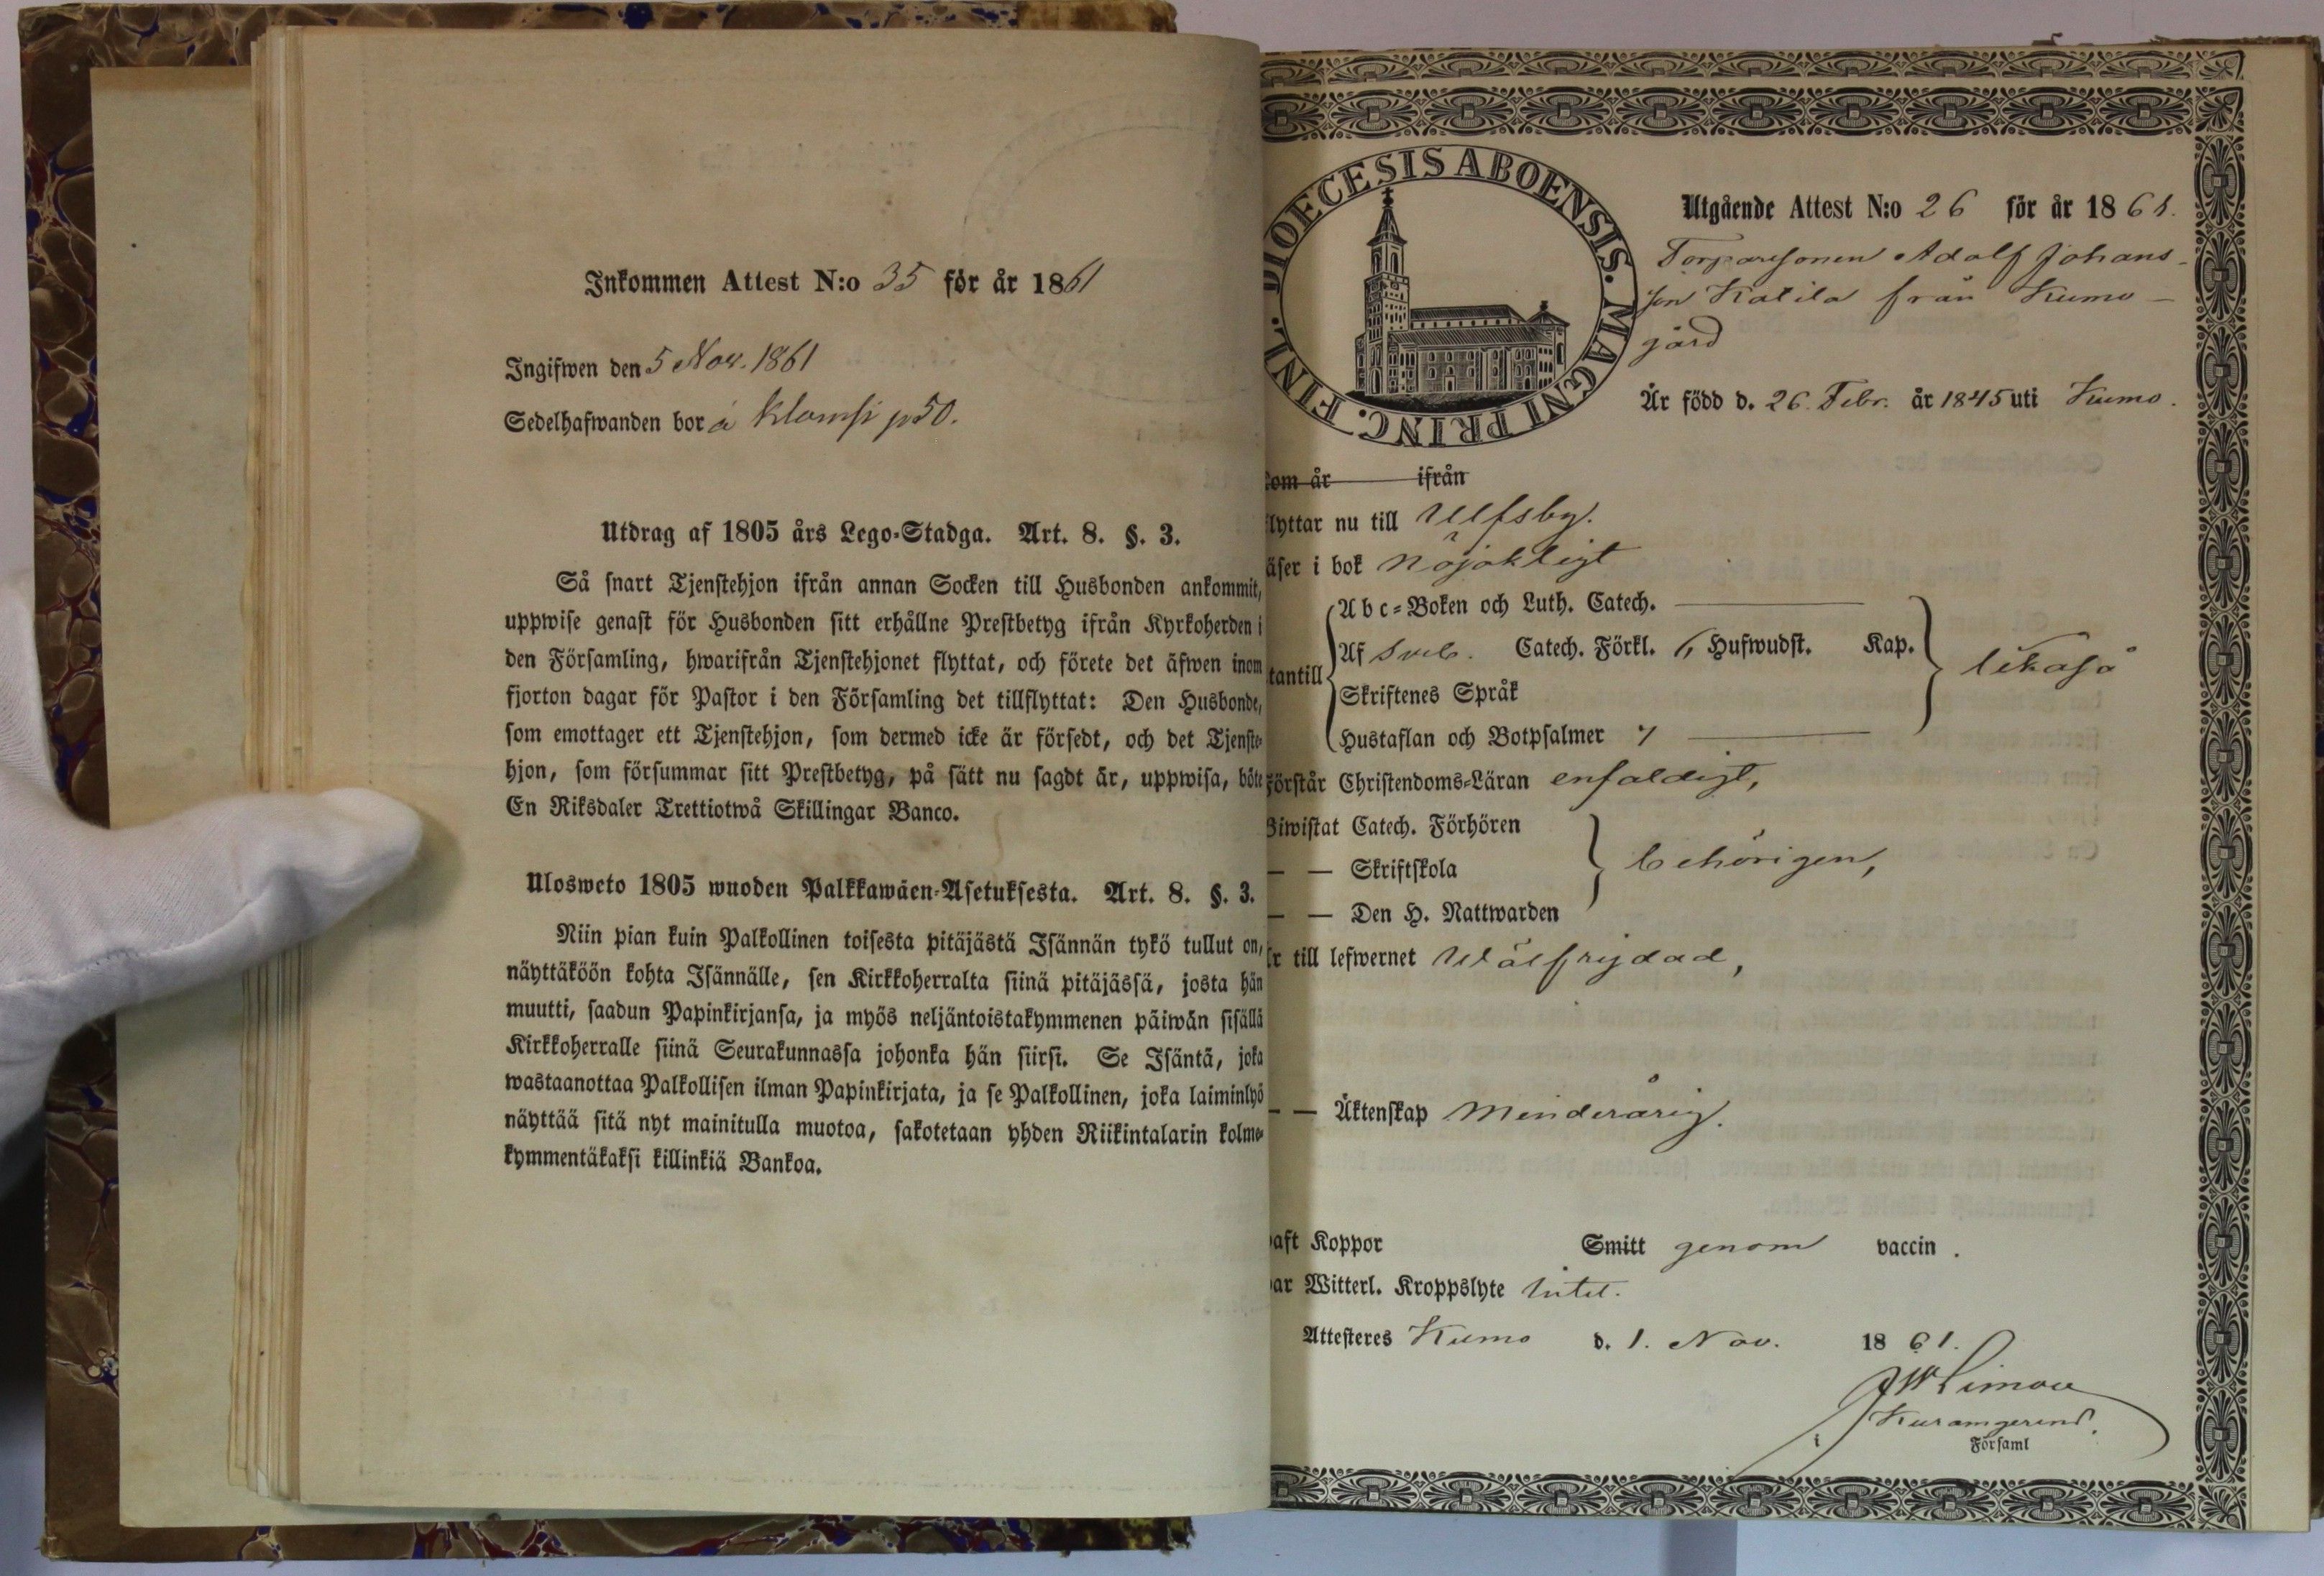 Inkommen Attest N:o 35 för år 1861
Ingifwen den 5 Nov. 1861
Sedelhafwanden bor å Klamsi p 50.
Utdrag af 1805 års Lego-Stadga. Art. 8. §. 3.
Så snart Tjenstehjon ifrån annan Socken till Husbonden ankommit,
uppwise genast för Husbonden sitt erhållne Prestbetyg ifrån Kyrkoherden i
den Församling, hwarifrån Tjenstehjonet flyttat, och förete det äfwen inom
fjorton dagar för Pastor i den Församling det tillflyttat: Den Husbonde,
som emottager ett Tjenstehjon, som dermed icke är försedt, och det Tjenste-
hjon, som försummar sitt Prestbetyg, på sätt nu sagdt är, uppwisa, böte
En Riksdaler Trettiotwå Skillingar Banco.
Ulosweto 1805 wuoden Palkkawäen-Asetuksesta. Art. 8. §. 3.
Niin pian kuin Palkollinen toisesta pitäjästä Isännän tykö tullut on,
näyttäköön kohta Isännälle, sen Kirkkoherralta siinä pitäjässä, josta hän
muutti, saadun Papinkirjansa, ja myös neljäntoistakymmenen päiwän sisällä
Kirkkoherralle siinä Seurakunnassa johonka hän siirsi. Se Isäntä, joka
wastaanottaa Palkollisen ilman Papinkirjata, ja se Palkollinen, joka laiminlyö
näyttää sitä nyt mainitulla muotoa, sakotetaan yhden Riikintalarin kolme-
kymmentäkaksi killinkiä Bankoa.
DIOECESIS ABOENSIS. MAGNI PRINC. FINL.
Utgående Attest N:o 26 för år 1861.
Torparesonen Adolf Johans-
son Katila från Kumo-
gård
Är född d. 26. Febr. år 1845 uti Kumo.
kom år ifrån
flyttar nu till Ulfsby.
läser i bok nöjaktigt
Abc-Boken och Luth. Catech.
utantill Af Sveb. Catech. Förkl. 6 Hufwudst. Kap. likaså
Skriftenes Språk
Hustaflan och Botpsalmer 7
Förstår Christendoms-Läran enfaldigt,
Biwistat Catech. Förhören
— — Skriftskola behörigen,
— — Den H. Nattwarden
Är till lefwernet wälfrejdad,
— — Äktenskap Minderårig.
haft Koppor Smitt genom vaccin.
har Witterl. Kroppslyte Intet.
Attesteres Kumo d. 1. Nov. 1861.
i Församl